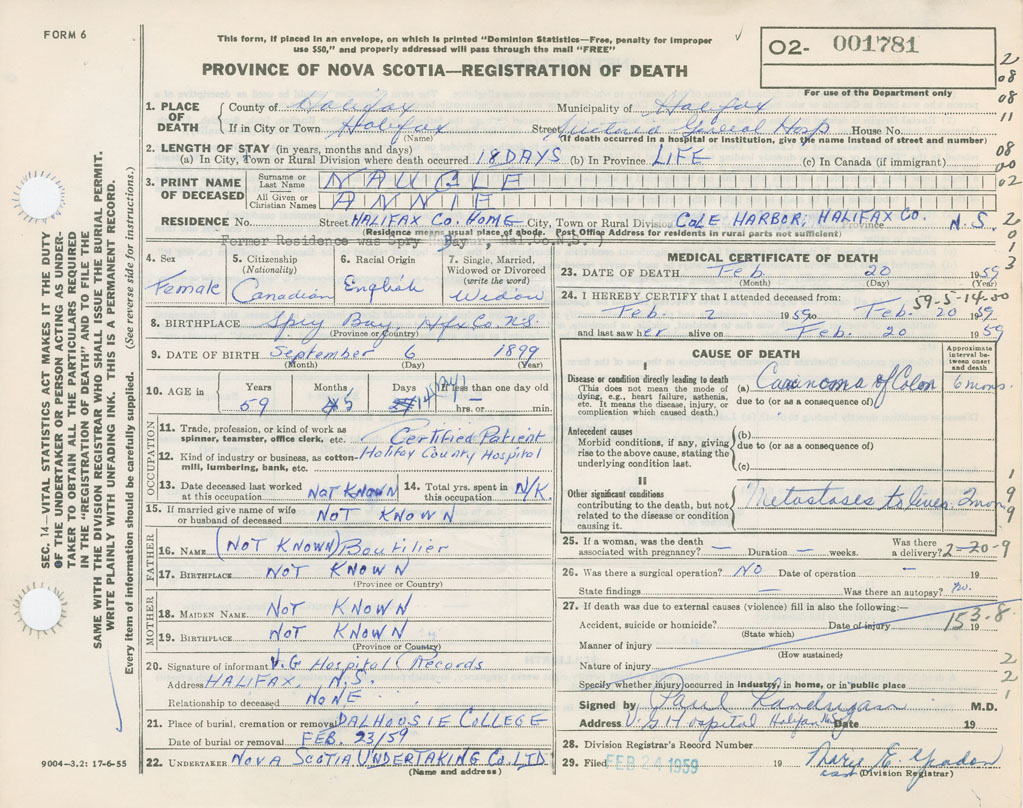 FORM 6
This form, if placed in an envelope, on which is printed "Dominion Statistics—Free, penalty for improper
use $50," and properly addressed will pass through the mail "FREE"
O2- 001781
PROVINCE OF NOVA SCOTIA—REGISTRATION OF DEATH
For use of the Department only
1. PLACE OF DEATH County of Halifax Municipality of Halifax
If in City or Town Halifax Street Victoria General Hosp House No.
(Name) (If death occurred in a hospital or institution, give the name instead of street and number)
2. LENGTH OF STAY (in years, months and days)
(a) In City, Town or Rural Division where death occurred 18 DAYS (b) In Province LIFE (c) In Canada (if immigrant)
3. PRINT NAME OF DECEASED Surname or Last Name NAUGLE
All Given or Christian Names ANNIE
RESIDENCE No. Street HALIFAX CO. HOME City, Town or Rural Division COLE HARBOR, HALIFAX CO. Province N.S.
(Residence means usual place of abode. (Post Office Address for residents in rural parts not sufficient)
Former Residence was Spry Bay, Hal.Co.N.S. )
4. Sex Female
5. Citizenship (Nationality) Canadian
6. Racial Origin English
7. Single, Married, Widowed or Divorced (write the word) Widow
8. BIRTHPLACE Spry Bay, Hfx Co. N.S.
(Province or Country)
9. DATE OF BIRTH September 6 1899
(Month) (Day) (Year)
10. AGE in Years 59 Months 5 Days 14 If less than one day old hrs. or min.
OCCUPATION
11. Trade, profession, or kind of work as spinner, teamster, office clerk, etc. Certified Patient
12. Kind of industry or business, as cotton-mill, lumbering, bank, etc. Halifax County Hospital
13. Date deceased last worked at this occupation NOT KNOWN 14. Total yrs. spent in this occupation N/K.
15. If married give name of wife or husband of deceased NOT KNOWN
FATHER
16. NAME (NOT KNOWN) Boutilier
17. BIRTHPLACE NOT KNOWN
(Province or Country)
MOTHER
18. MAIDEN NAME NOT KNOWN
19. BIRTHPLACE NOT KNOWN
(Province or Country)
20. Signature of informant V.G Hospital Records
Address HALIFAX, N.S.
Relationship to deceased NONE
21. Place of burial, cremation or removal DALHOUSIE COLLEGE
Date of burial or removal FEB. 23/59
22. UNDERTAKER NOVA SCOTIA UNDERTAKING CO. LTD.
(Name and address)
9004—3.2: 17-6-55
MEDICAL CERTIFICATE OF DEATH
23. DATE OF DEATH Feb 20 1959
(Month) (Day) (Year)
59-5-14-00
24. I HEREBY CERTIFY that I attended deceased from:
Feb. 2 1959 to Feb. 20 1959
and last saw her alive on Feb. 20 1959
CAUSE OF DEATH
Approximate interval between onset and death
I
Disease or condition directly leading to death
(This does not mean the mode of dying, e.g., heart failure, asthenia, etc. It means the disease, injury, or complication which caused death.)
(a) Carcinoma of Colon 6 mons.
due to (or as a consequence of)
Antecedent causes
Morbid conditions, if any, giving rise to the above cause, stating the underlying condition last.
(b)
due to (or as a consequence of)
(c)
II
Other significant conditions
contributing to the death, but not related to the disease or condition causing it.
Metastases to liver 2 mon
25. If a woman, was the death associated with pregnancy? — Duration — weeks. Was there a delivery?
2-20-9
26. Was there a surgical operation? NO Date of operation — 19
State findings — Was there an autopsy? no.
27. If death was due to external causes (violence) fill in also the following:—
Accident, suicide or homicide? Date of injury 19
153.8
(State which)
Manner of injury
(How sustained)
Nature of injury
Specify whether injury occurred in industry, in home, or in public place
Signed by Paul Landrigan M.D.
Address V.G Hospital Halifax N.S. Date 19
28. Division Registrar's Record Number
29. Filed FEB 24 1959 19 Marie E.
(Division Registrar)
SEC. 14—VITAL STATISTICS ACT MAKES IT THE DUTY
OF THE UNDERTAKER OR PERSON ACTING AS UNDER-
TAKER TO OBTAIN ALL THE PARTICULARS REQUIRED
IN THE "REGISTRATION OF DEATH" AND TO FILE THE
SAME WITH THE DIVISION REGISTRAR WHO SHALL ISSUE THE BURIAL PERMIT.
WRITE PLAINLY WITH UNFADING INK. THIS IS A PERMANENT RECORD.
Every item of information should be carefully supplied. (See reverse side for instructions.)
2
08
08
11
08
00
02
2
0
1
3
1
9
9
2
2
1